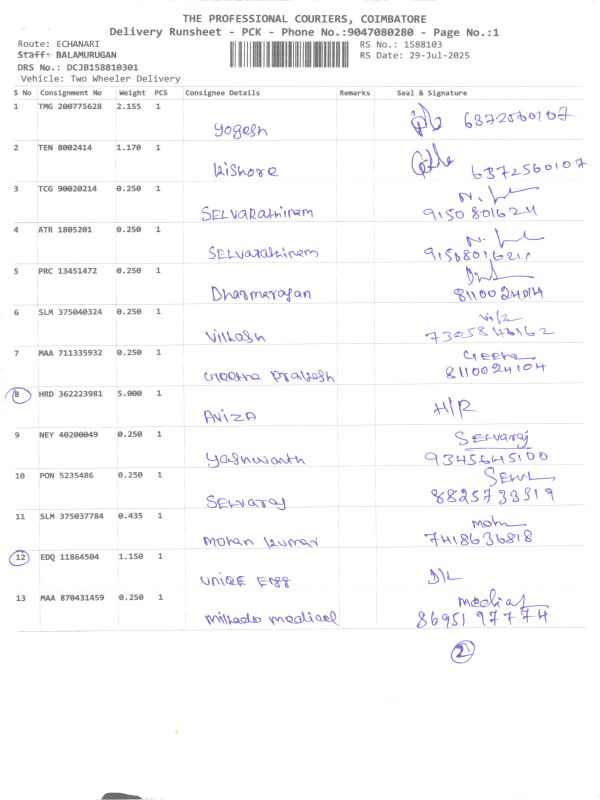 THE PROFESSIONAL COURIERS, COIMBATORE
Delivery Runsheet - PCK - Phone No.:9047080280 - Page No.:1
Route: ECHANARI RS No.: 1588103
Staff: BALAMURUGAN RS Date: 29-Jul-2025
DRS No.: DCJB158810301
Vehicle: Two Wheeler Delivery
S No Consignment No Weight PCS Consignee Details Remarks Seal & Signature
1 TMG 200775628 2.155 1
Yogesh 6372560107
2 TEN 8002414 1.170 1
Kishore 6372560107
3 TCG 90020214 0.250 1
SELVARathinam 9150801621
4 ATR 1805201 0.250 1
SELVarathinam
5 PRC 13451472 0.250 1
Dharmarajan
6 SLM 375040324 0.250 1
Vikash
7 MAA 711335932 0.250 1 Geetha
Geetha Prakash 8110024104
8 HRD 362223981 5.000 1
AVIZA H/R
9 NEY 40200049 0.250 1 Selvaraj
Yashwanth 9345645100
10 PON 5235486 0.250 1
SELVaraj 8825733519
11 SLM 375037784 0.435 1
Mohan Kumar 7418636818
12 EDQ 11864504 1.150 1
UNIQE Egg D/L
13 MAA 870431459 0.250 1 Medical
medical 8695197774
2